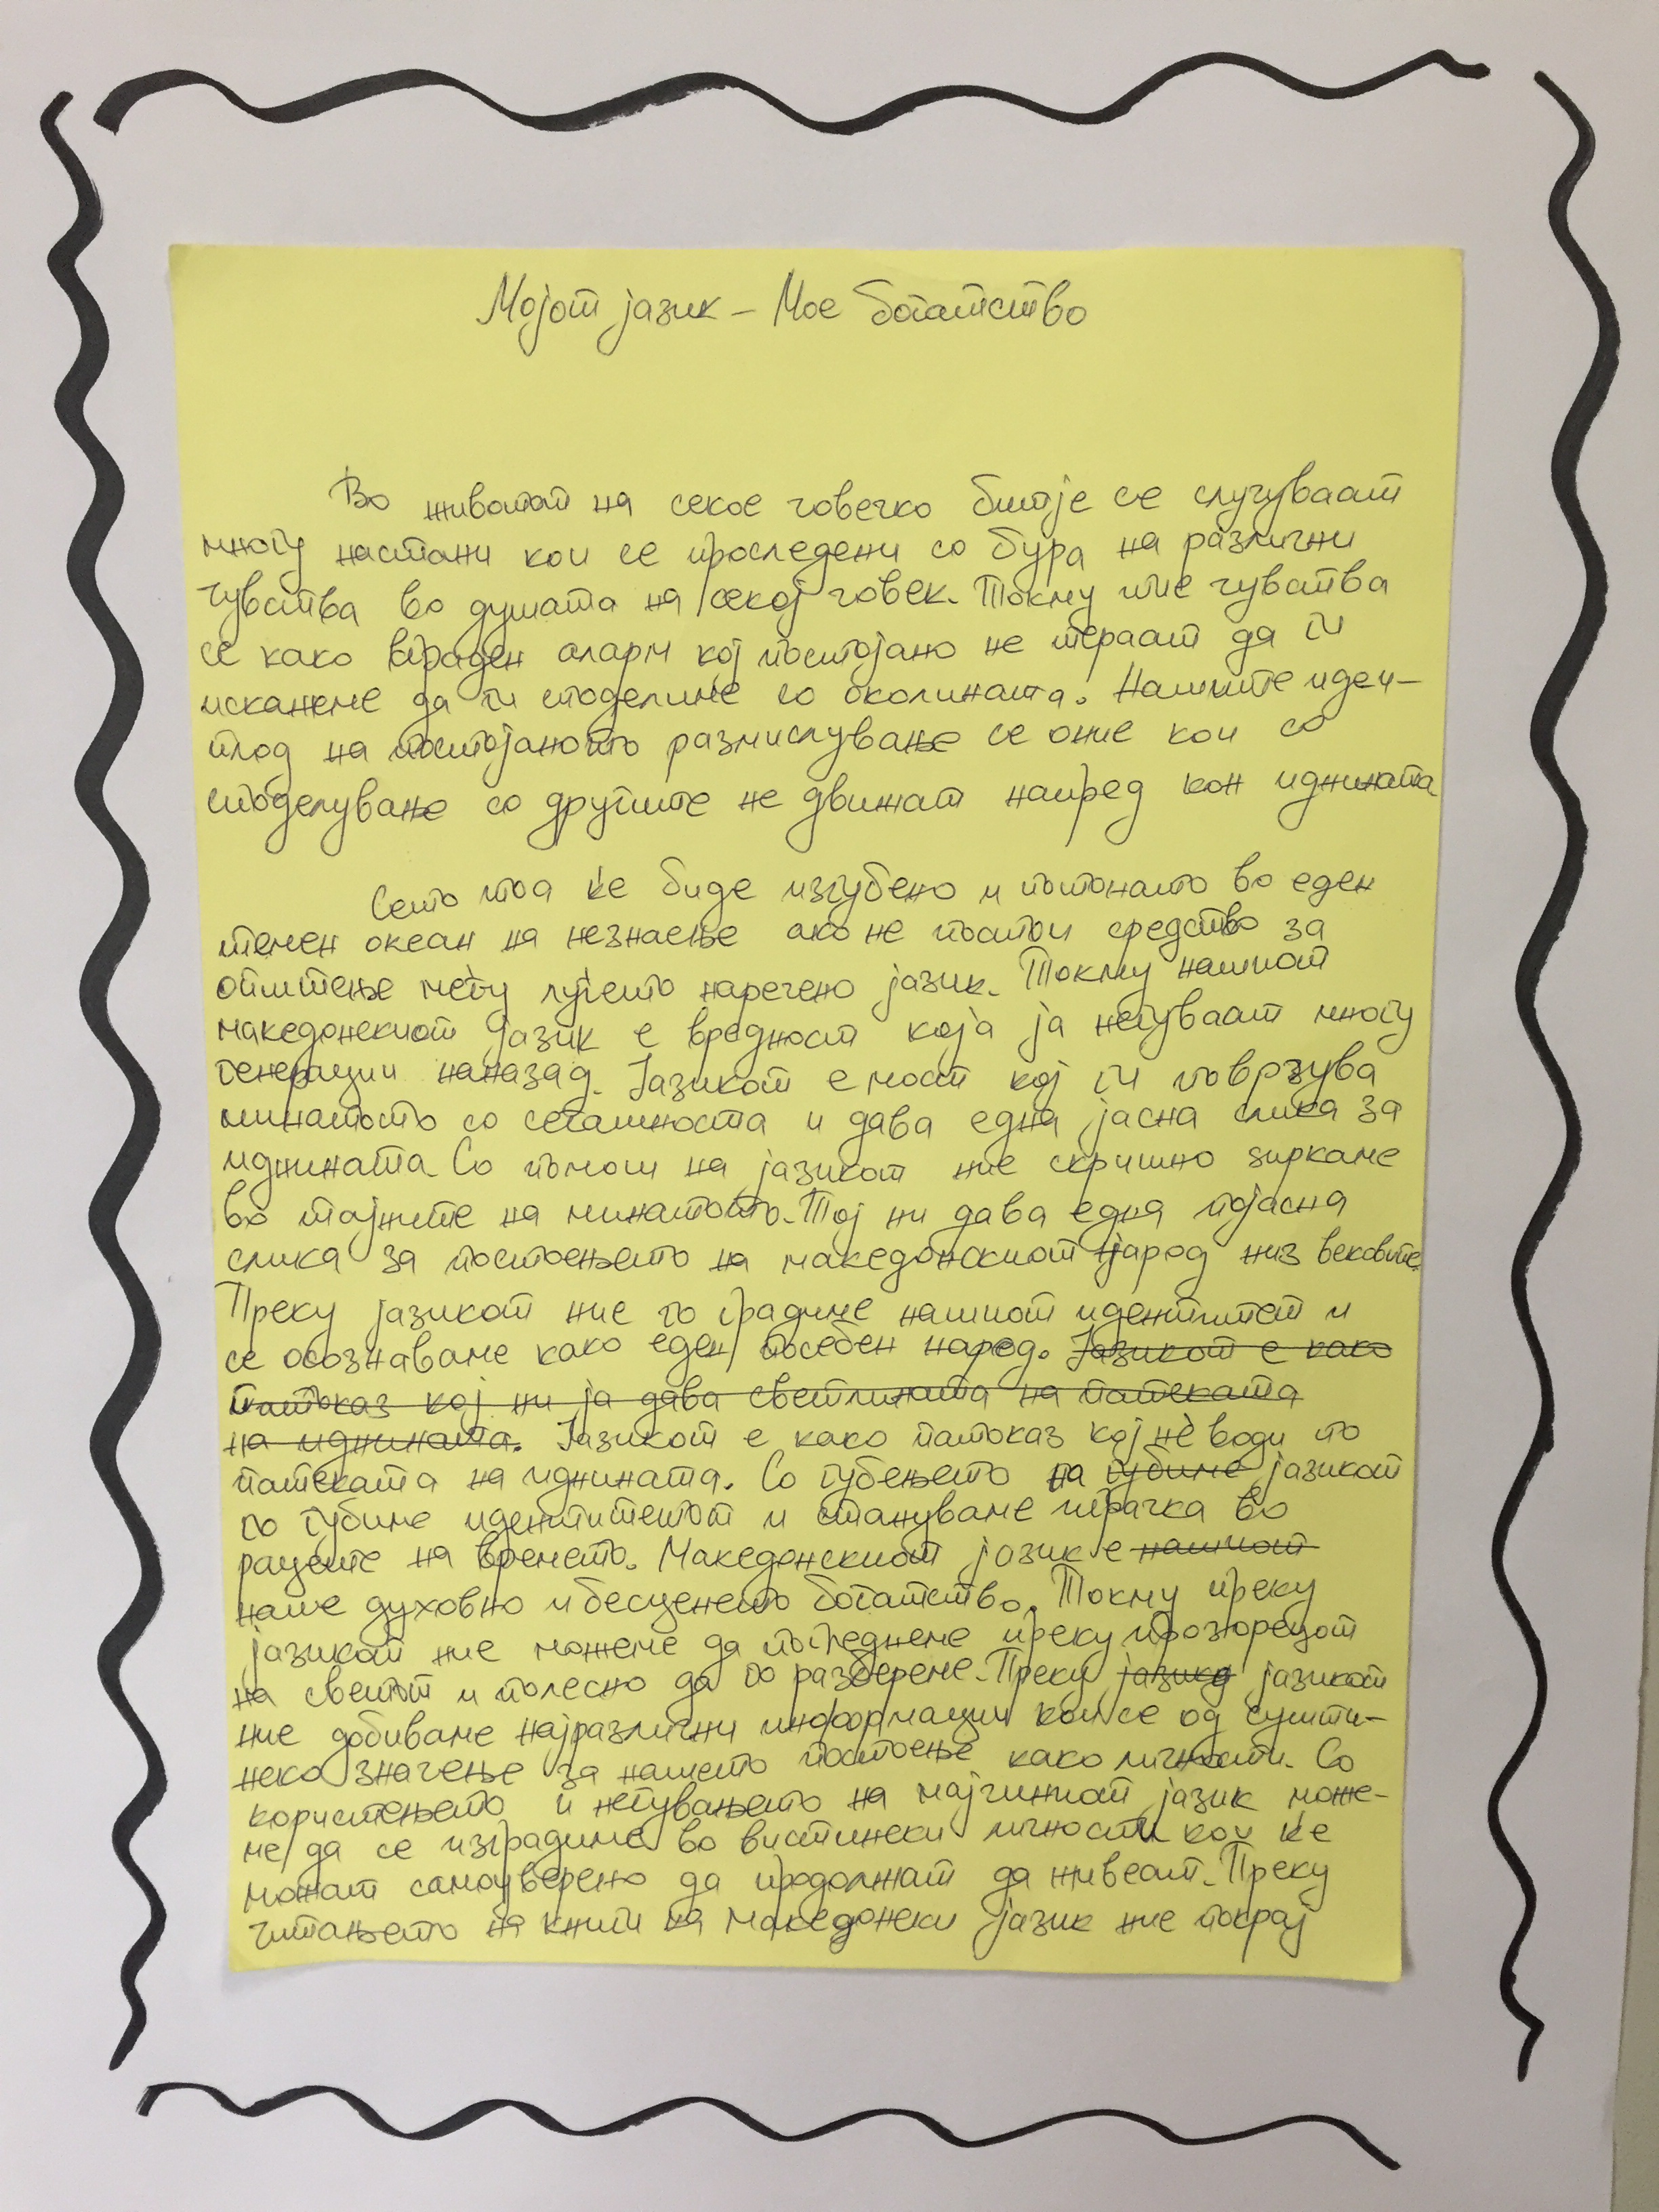 Мојот јазик – Мое богатство
Во животот на секое човечко битје се случуваат
многу настани кои се проследени со бура на различни
чувства во душата на секој човек. Токму тие чувства
се како вграден аларм кој постојано не тераат да ги
искажеме да ги споделиме со околината. Нашите идеи –
плод на постојаното размислување се оние кои со
споделување со другите не движат напред кон иднината
Сето тоа ќе биде изгубено и потонато во еден
темен океан на незнаење ако не постои средство за
општење меѓу луѓето наречено јазик. Токму нашиот
македонскиот јазик е вредност која ја негуваат многу
генерации наназад. Јазикот е мост кој ги поврзува
минатото со сегашноста и дава една јасна слика за
иднината. Со помош на јазикот ние скришно ѕиркаме
во тајните на минатото. Тој ни дава една појасна
слика за постоењето на македонскиот народ низ вековите.
Преку јазикот ние го градиме нашиот идентитет и
се осознаваме како еден посебен народ. Јазикот е како
патоказ кој ни ја дава светлината на патеката
на иднината. Јазикот е како патоказ кој нè води по
патеката на иднината. Со губењето на губиме јазикот
го губиме идентитетот и стануваме играчка во
рацете на времето. Македонскиот јазик е нашиот
наше духовно и бесценето богатство. Токму преку
јазикот ние можеме да погледнеме преку прозорецот
на светот и полесно да го разбереме. Преку јазикд јазикот
ние добиваме најразлични информации кои се од сушти-
нско значење за нашето постоење како личности. Со
користењето и негувањето на мајчиниот јазик може-
ме да се изградиме во вистински личности кои ќе
можат самоуверено да продолжат да живеат. Преку
читањето на книги на македонски јазик ние покрај